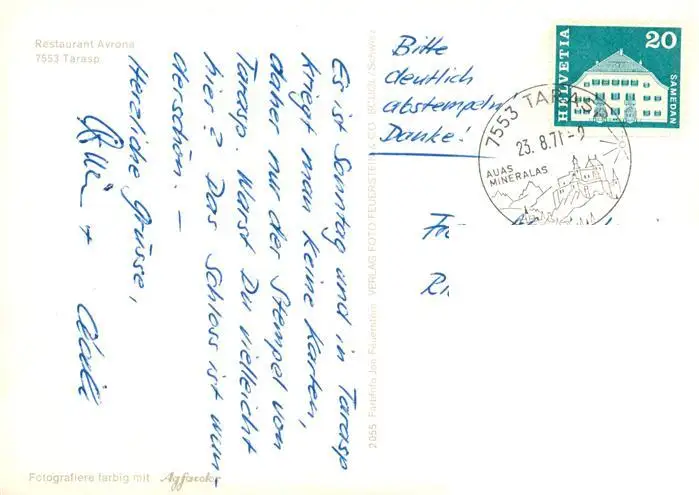 Restaurant Avrona
7553 Tarasp
Es ist Sonntag und in Tarasp
kriegt man keine Karten,
daher nur der Stempel von
Tarasp. Warst Du vielleicht
hier? Das Schloss ist wun-
derschön. –
Herzliche Grüsse,
+
Fotografiere farbig mit Agfacolor
2055 Farbfoto Jon Feuerstein VERLAG FOTO FEUERSTEIN & CO. /Schweiz
Bitte
deutlich
abstempeln!
Danke!
HELVETIA
20
SAMEDAN
7553 TARASP
23.8.71-9
AUAS
MINERALAS